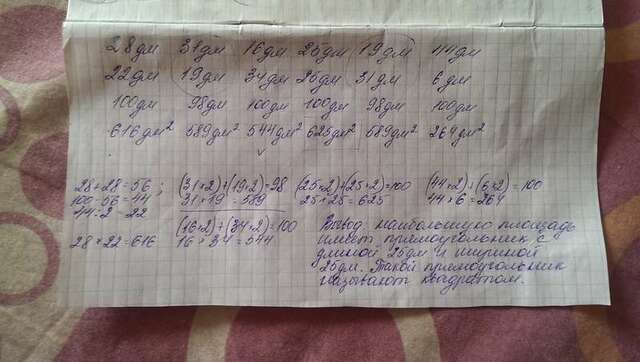 28дм 31дм 16дм 25дм 19дм 44дм
22дм 19дм 34дм 25дм 31дм 6дм
100дм 98дм 100дм 100дм 98дм 100дм
616дм² 589дм² 544дм² 625дм² 589дм² 264дм²
28+28=56; (31×2)+(19×2)=98 (25×2)+(25×2)=100 (44×2)+(6×2)=100
100-56=44 31×19=589 25×25=625 44×6=264
44:2=22 (16×2)+(34×2)=100
28×22=616 16×34=544
Вывод: наибольшую площадь
имеет прямоугольник с
длиной 25дм и шириной
25дм. Такой прямоугольник
называют квадратом.